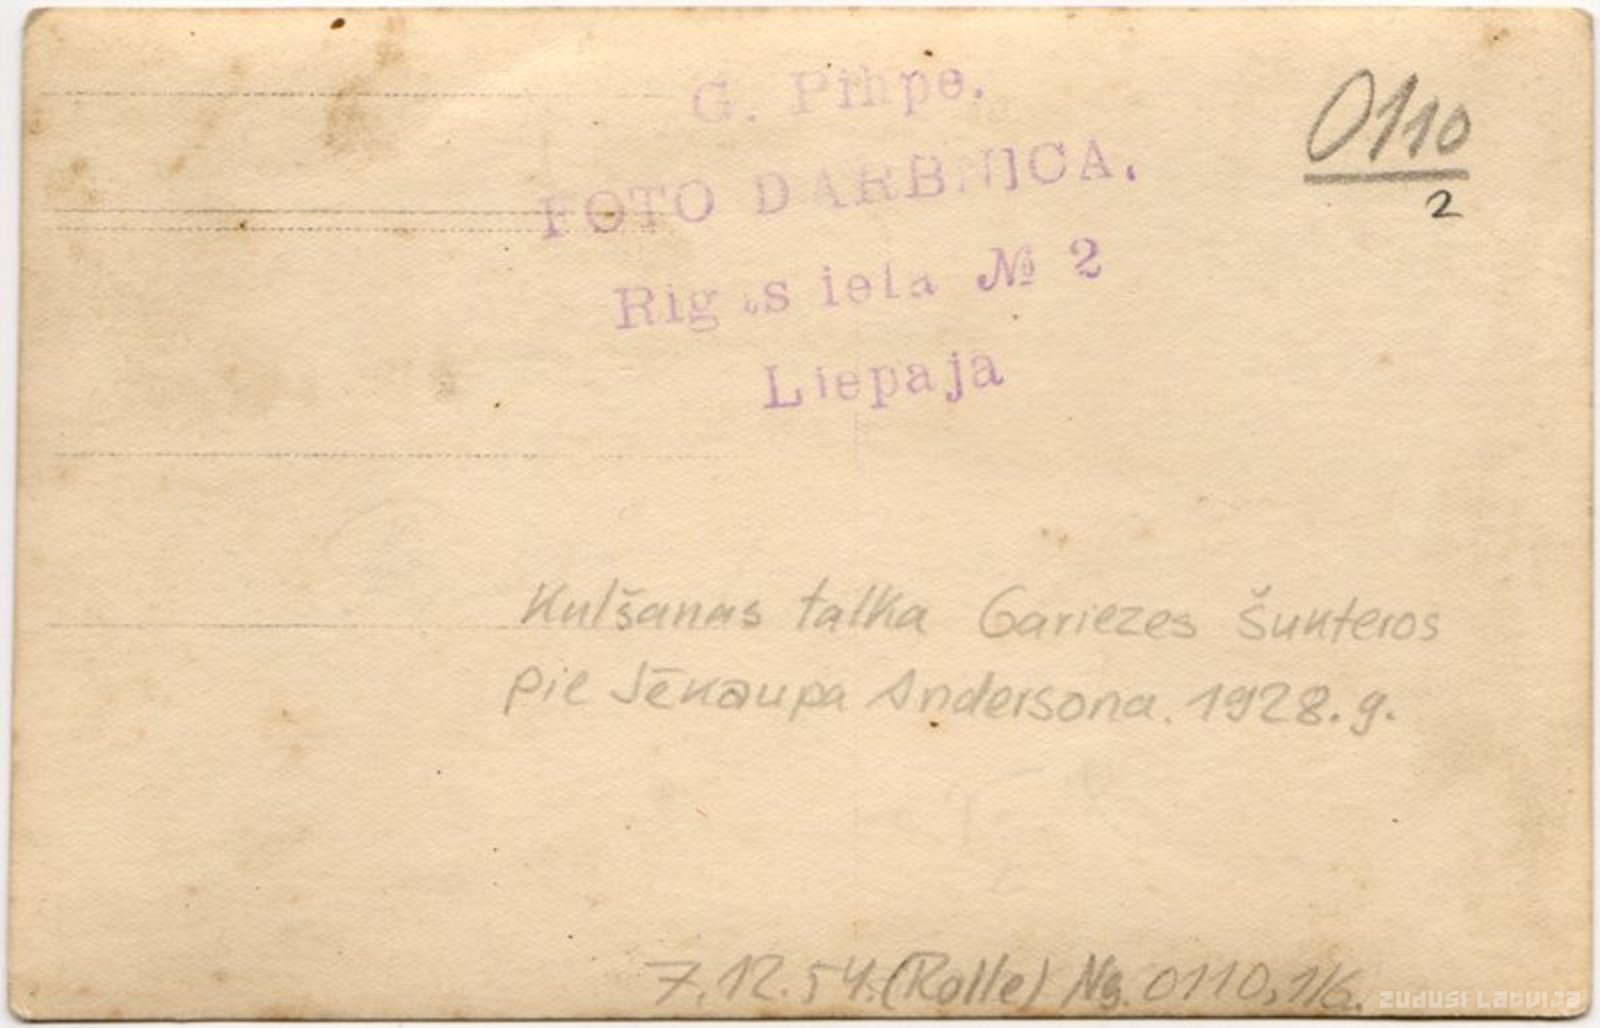 G. Pihpe.
FOTO DARBNICA.
Rigas iela № 2
Liepaja
0110
2
Kulšanas talka Gariezes Šukteros
pie Jēkaupa Andersona. 1928. g.
7.12.54. (Rolle) Ng. 0110, 1/6.
ZUDUSI LATVIJA